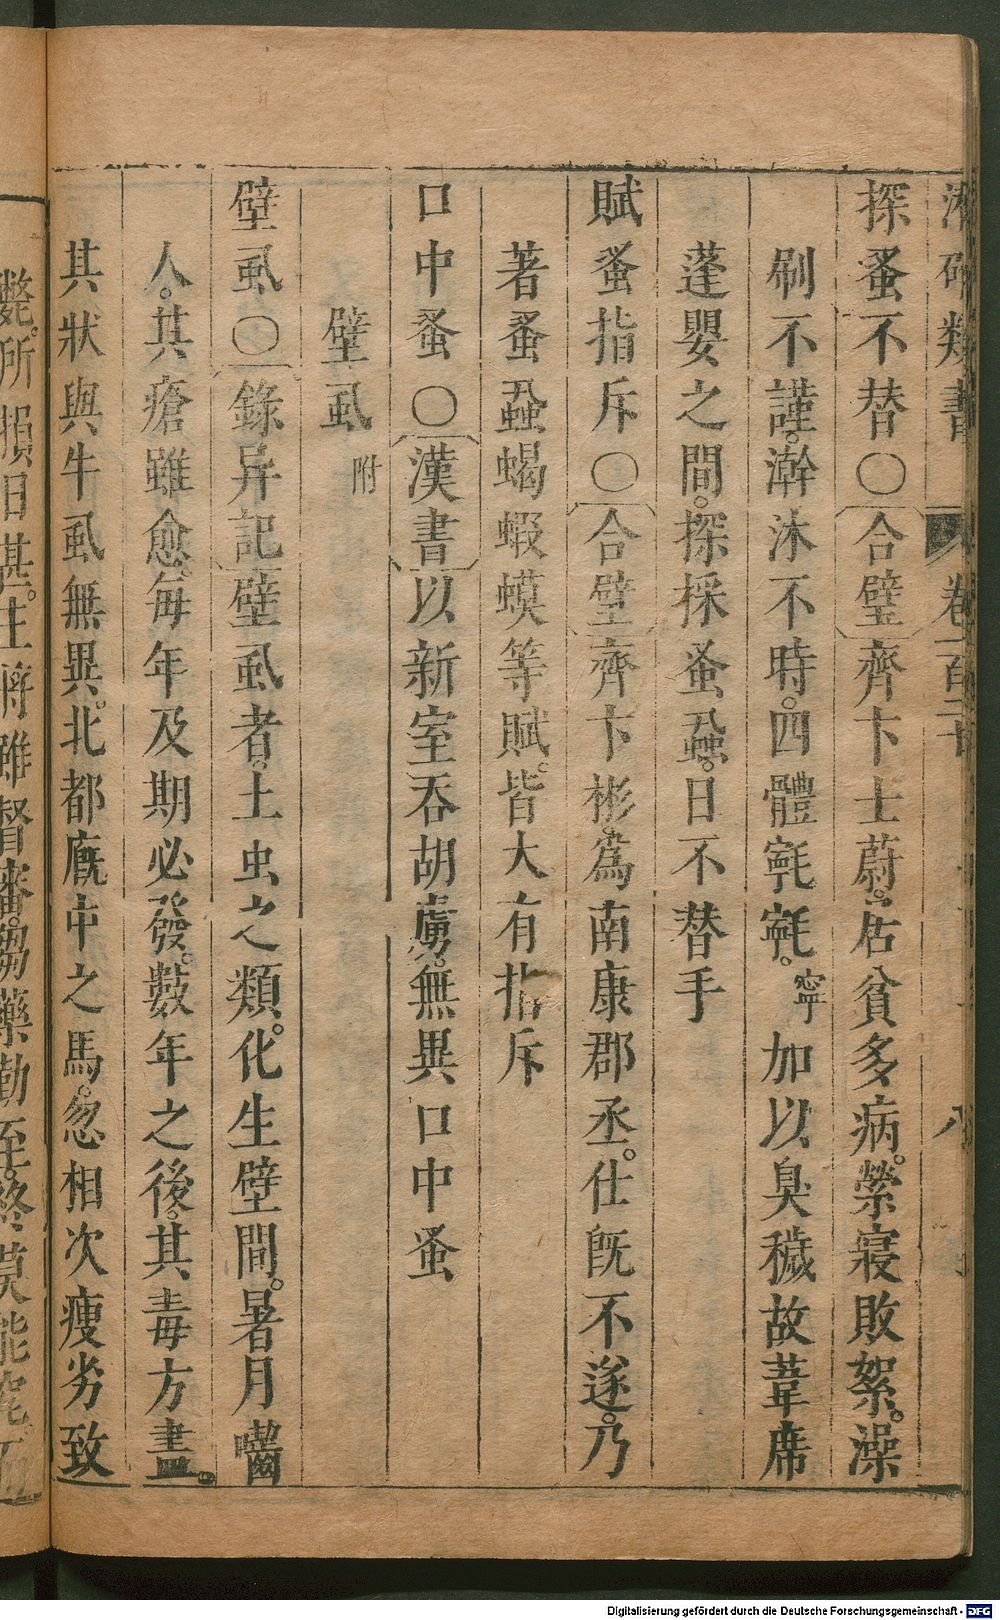 類書 卷一百二十 八
探蚤不替〇合璧齊卞士蔚。居貧多病。縈寢敗絮。澡
刷不謹。澣沐不時。四體𣯶𣯶。寧加以臭穢故葦席
蓬嬰之間。探採蚤蝨。日不替手
賦蚤指斥〇合璧齊卞彬。爲南康郡丞。仕旣不遂。乃
著蚤蝨蝎蝦蟆等賦。皆大有指斥
口中蚤〇漢書以新室吞胡虜。無異口中蚤
壁虱附
壁虱〇錄异記壁虱者。土虫之類。化生壁間。暑月嚙
人。其瘡雖愈。每年及期必發。數年之後。其毒方盡。
其狀與牛虱無異。北都廐中之馬。忽相次瘦劣致
斃。所損日甚。主將雖督審。芻藥勤至。終莫能究。而
Digitalisierung gefördert durch die Deutsche Forschungsgemeinschaft - DFG